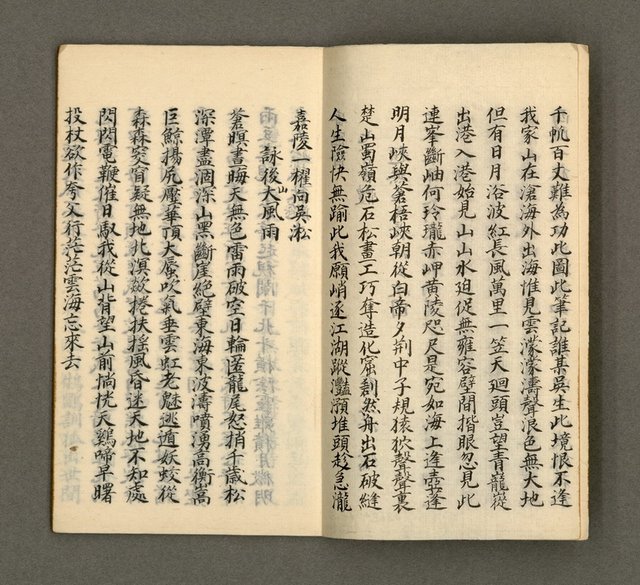 千帆百丈難為功此圖此筆記誰某吳生此境恨不逢
我家山在滄海外出海惟見雲濛濛濤聲浪色無大地
但有日月浴波紅長風萬里一笠天迴頭豈望青巃嵸
出港入港始見山山水迫促無雍容壁間揩眼忽見此
連峯斷岫何玲瓏赤岬黄陵咫尺是宛如海上逢壺蓬
明月峽與蒼梧峽朝從白帝夕荆中子規猿狖聲聲裏
楚山蜀嶺危石松畫工巧奪造化窟劃然舟出石破縫
人生險快無踰此我願峭逐江湖蹤灩澦堆頭趁急瀧
嘉陵一櫂向吳淞
詠後山大風雨
蒼瞑書晦天無色雷雨破空日輪匿龍尾怒捎千歲松
深潭盡涸深山黑斷崖絕壁東海東波濤噴湧高衡嵩
巨鯨揚尻壓華頂大蜃吹氣垂雲虹老魅逃遁妖蛟從
森森突窅疑無地北溟欲捲扶搖風昏迷天地不知處
閃閃電鞭催日馭我從山背望山前惝恍天鷄啼早曙
投杖欲作夸父行茫茫雲海忘來去